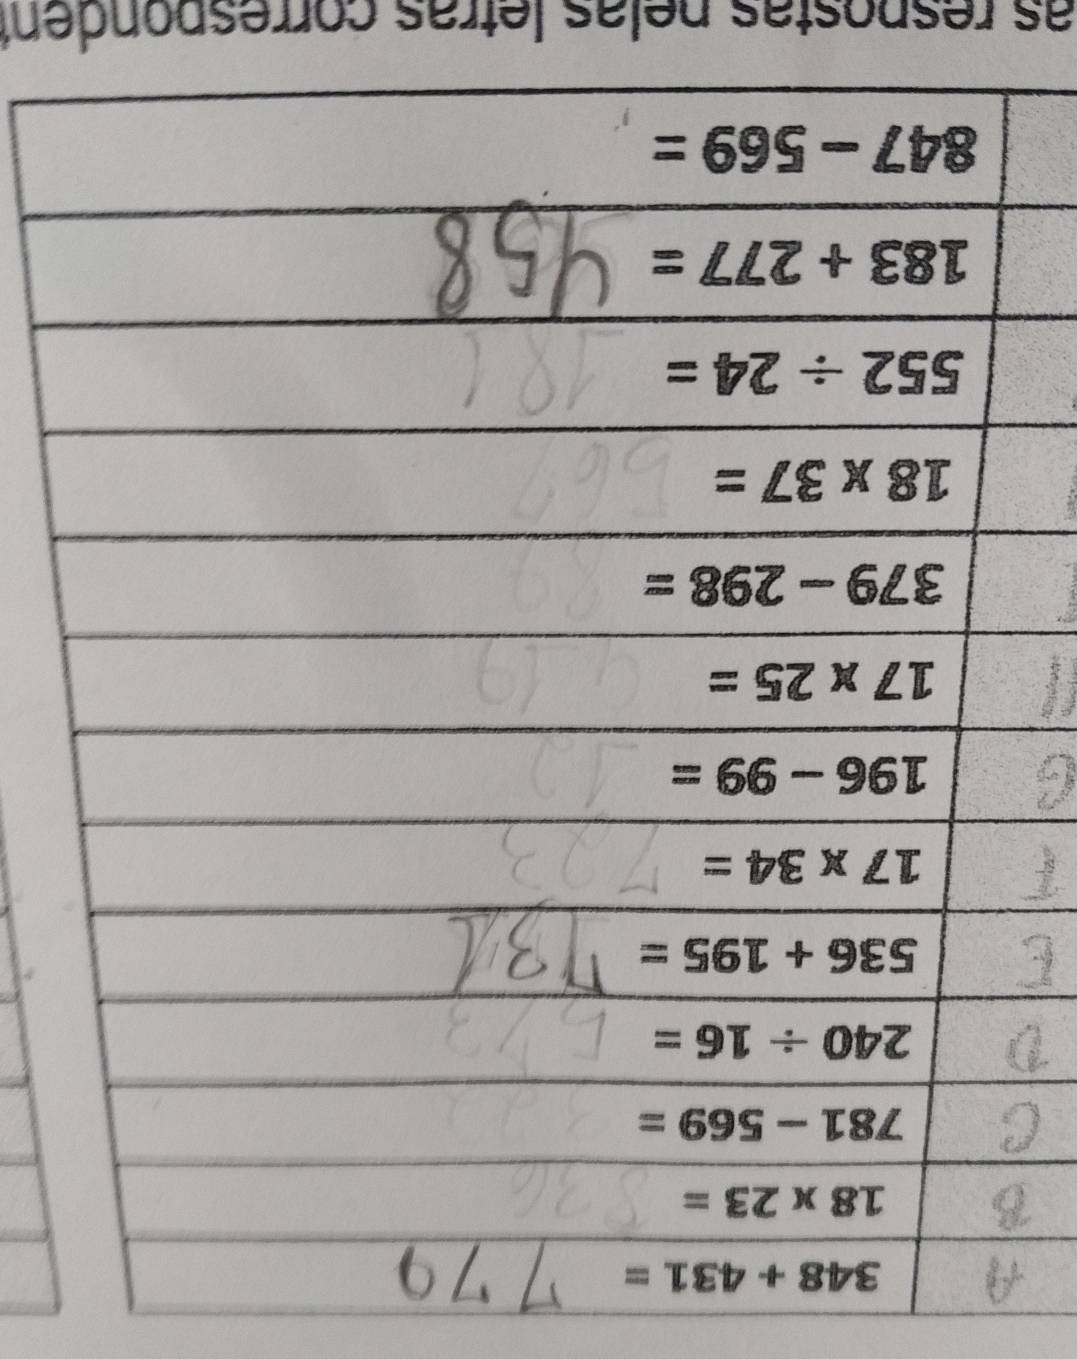 A 348 + 431 = 779
B 18 x 23 = 836
C 781 – 569 =
D 240 ÷ 16 = 573
E 536 + 195 = 731
F 17 x 34 = 723
G 196 – 99 = 12
17 x 25 = 419
379 – 298 = 89
18 x 37 = 567
552 ÷ 24 = 181
183 + 277 = 458
847 – 569 =
as respostas pelas letras correspondent